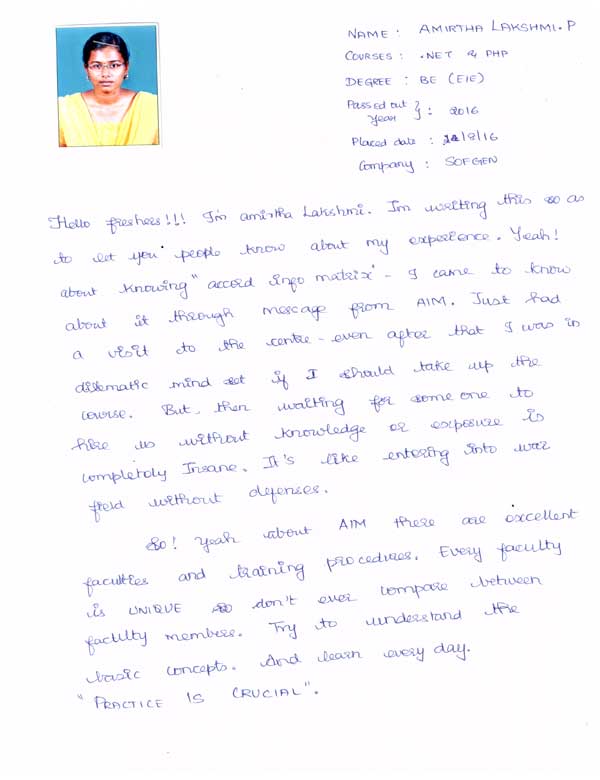 NAME : AMIRTHA LAKSHMI.P
COURSES : .NET & PHP
DEGREE : BE (EIE)
Passed out year } : 2016
Placed date : /8/16
Company : SOFGEN
Hello freshers!!! I'm amirtha Lakshmi. I'm writing this so as
to let you people know about my experience. Yeah!
about knowing "accord info matrix" - I came to know
about it through message from AIM. Just had
a visit to the centre - even after that I was in
dilematic mind set if I should take up the
course. But, then waiting for some one to
hire us without knowledge or exposure is
completely Insane. It's like entering into war
field without defenses.
So! Yeah about AIM there are excellent
faculties and training procedures. Every faculty
is UNIQUE so don't ever compare between
faculty members. Try to understand the
basic concepts. And learn every day.
"PRACTICE IS CRUCIAL".